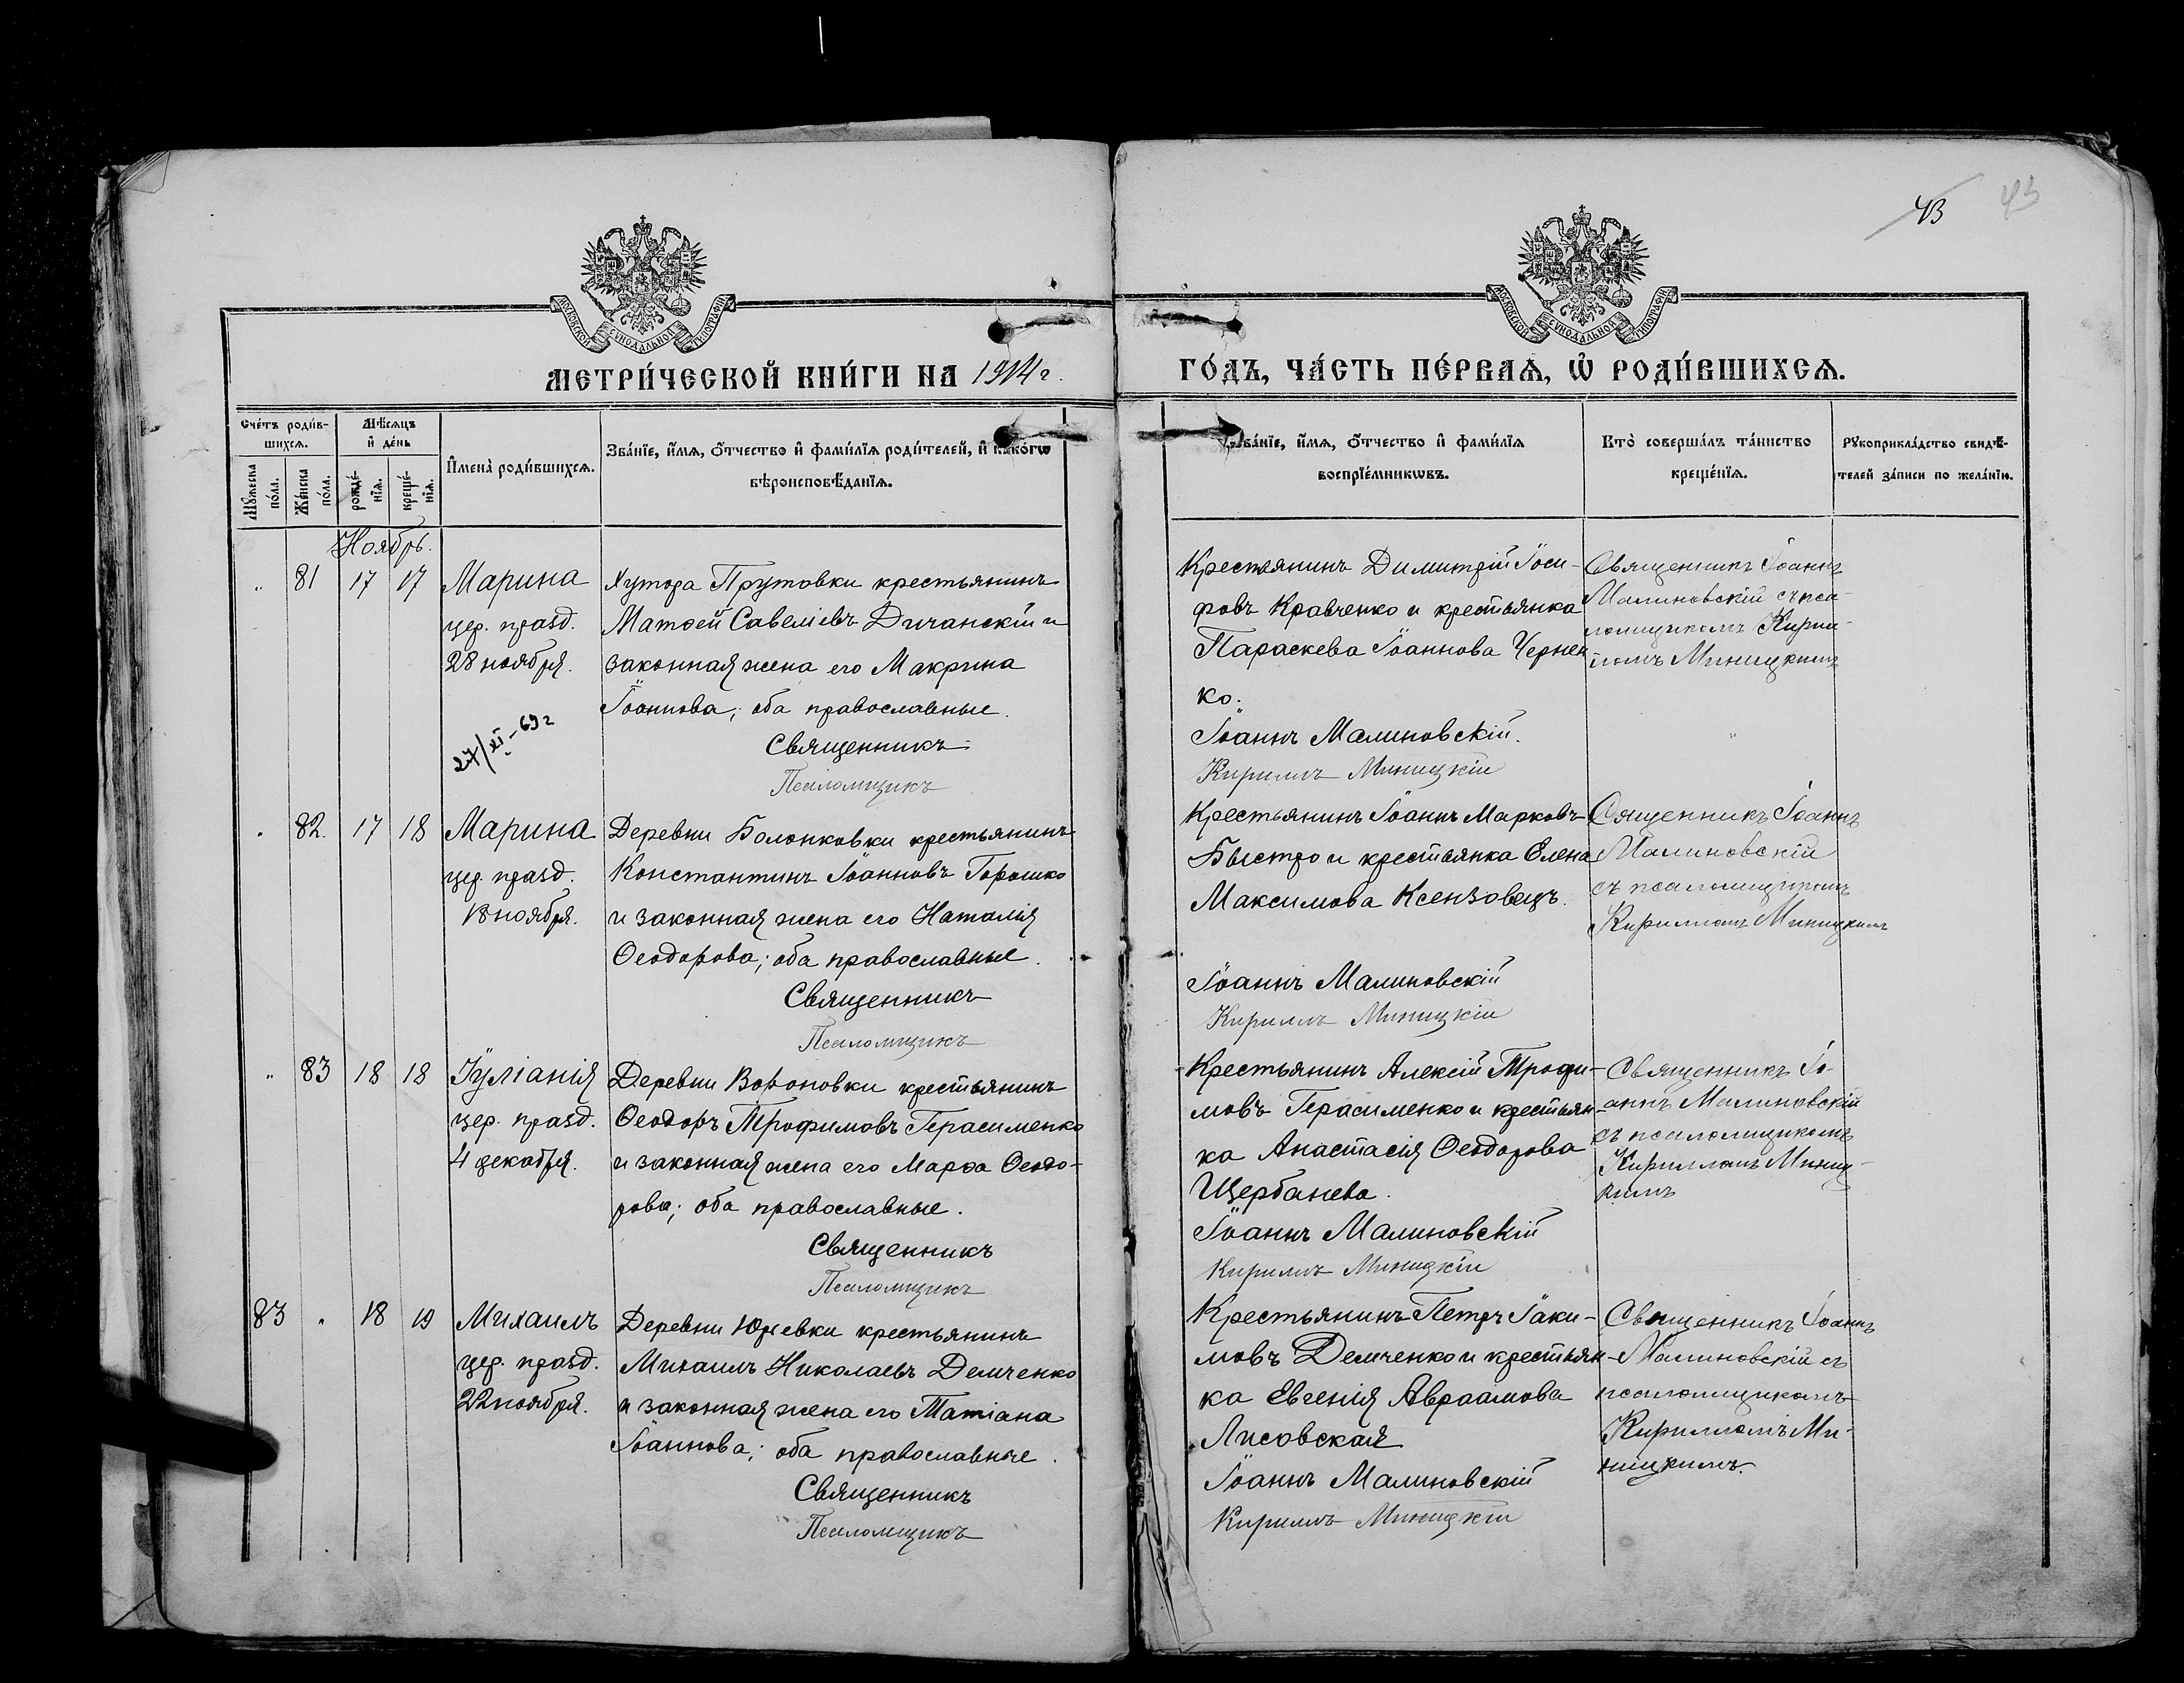 43 43
МОСКОВСКОЙ СУНОДАЛЬНОЙ ТИПОГРАФІИ
МОСКОВСКОЙ СУНОДАЛЬНОЙ ТИПОГРАФІИ
МЕТРИ́ЧЕСКОЙ КНИ́ГИ НА 1914 г.
ГО́ДЪ, ЧА́СТЬ ПЕ́РВАѦ, Ѡ҆ РОДИ́ВШИХСѦ.
Сче́тъ роди́в-
шихсѧ.
Мꙋжеска по́ла.
Же́нска по́ла.
Мѣ́сѧцъ
и҆ де́нь
рожде́-
нїѧ.
креще́-
нїѧ.
И҆мена̀ роди́вшихсѧ.
Зва́нїе, и҆́мѧ, ѻ҆́тчество и҆ фами́лїѧ роди́телей, и҆ како́гѡ
вѣроисповѣ́данїѧ.
Зва́нїе, и҆́мѧ, ѻ҆́тчество и҆ фами́лїѧ
воспрїе́мникѡвъ.
Кто̀ соверша́лъ та́инство
креще́нїѧ.
Рꙋкоприкла́дство свидѣ́-
телей за́писи по жела́нїю.
Ноябрь.
" 81 17 17 Марина
цер. празд.
28 ноября.
27/XI-69 г
Хутора Прутовки крестьянинъ
Матѳей Савеліевъ Дичанскій и
законная жена его Макрина
Іоаннова; оба православные.
Священникъ
Псаломщикъ
Крестьянинъ Димитрій Іоси-
фовъ Кравченко и крестьянка
Параскева Іоаннова Чернен
ко.
Іоаннъ Малиновскій.
Кириллъ Миницкій
Священникъ Іоаннъ
Малиновскій съ пса-
ломщикомъ Кирил-
ломъ Миницкимъ
" 82. 17 18 Марина
цер. празд.
18 ноября.
Деревни Болонковки крестьянинъ
Константинъ Іоанновъ Горошко
и законная жена его Наталія
Ѳеодорова; оба православные.
Священникъ
Псаломщикъ
Крестьянинъ Іоаннъ Марковъ
Быстро и крестьянка Елена
Максимова Ксензовецъ.
Іоаннъ Малиновскій
Кириллъ Миницкій
Священникъ Іоаннъ
Малиновскій
съ псаломщикомъ
Кирилломъ Миницкимъ
" 83 18 18 Іуліанія
цер. празд.
4 декабря.
Деревни Вороновки крестьянинъ
Ѳеодоръ Трофимовъ Герасименко
и законная жена его Марѳа Ѳеодо-
рова; оба православные.
Священникъ
Псаломщикъ
Крестьянинъ Алексій Трофи-
мовъ Герасименко и крестьян-
ка Анастасія Ѳеодорова
Щербанева.
Іоаннъ Малиновскій
Кириллъ Миницкій
Священникъ Іо-
аннъ Малиновскій
съ псаломщикомъ
Кирилломъ Миниц-
кимъ
83 " 18 19 Михаилъ
цер. празд.
22 ноября.
Деревни Юрьевки крестьянинъ
Михаилъ Николаевъ Демченко
и законная жена его Татіана
Іоаннова; оба православные.
Священникъ
Псаломщикъ
Крестьянинъ Петръ Іаки-
мовъ Демченко и крестьян-
ка Евгенія Авраамова
Лисовская
Іоаннъ Малиновскій
Кириллъ Миницкій
Священникъ Іоаннъ
Малиновскій съ
псаломщикомъ
Кирилломъ Ми-
ницкимъ.